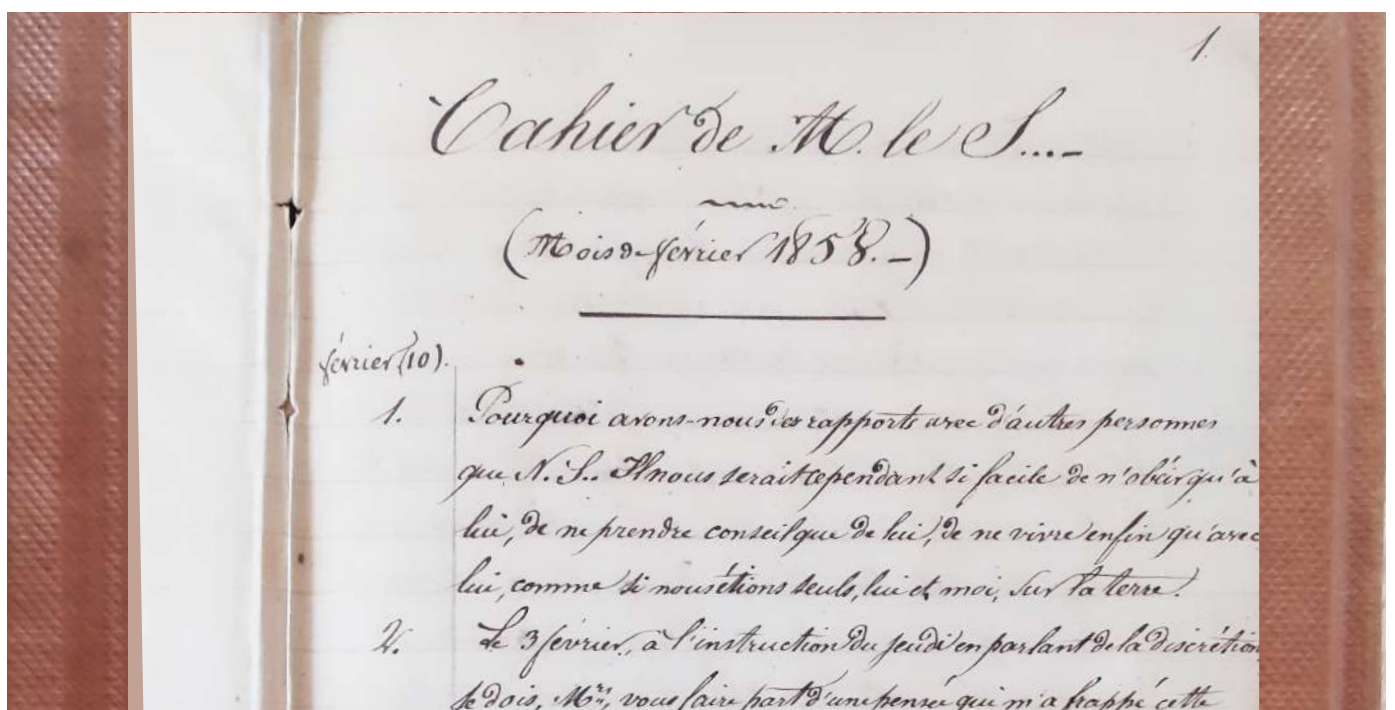 1.
Cahier de M. le S....-
(Mois de février 1858.-)
février (10).
1. Pourquoi avons-nous des rapports avec d'autres personnes
que N. S.. Il nous serait cependant si facile de n'obéir qu'à
lui, de ne prendre conseil que de lui, de ne vivre enfin qu'avec
lui, comme si nous étions seuls, lui et moi, sur la terre.
2. Le 3 février, à l'instruction du jeudi en parlant de la discrétion
je dois, Mrs, vous faire part d'une pensée qui m'a frappé cette